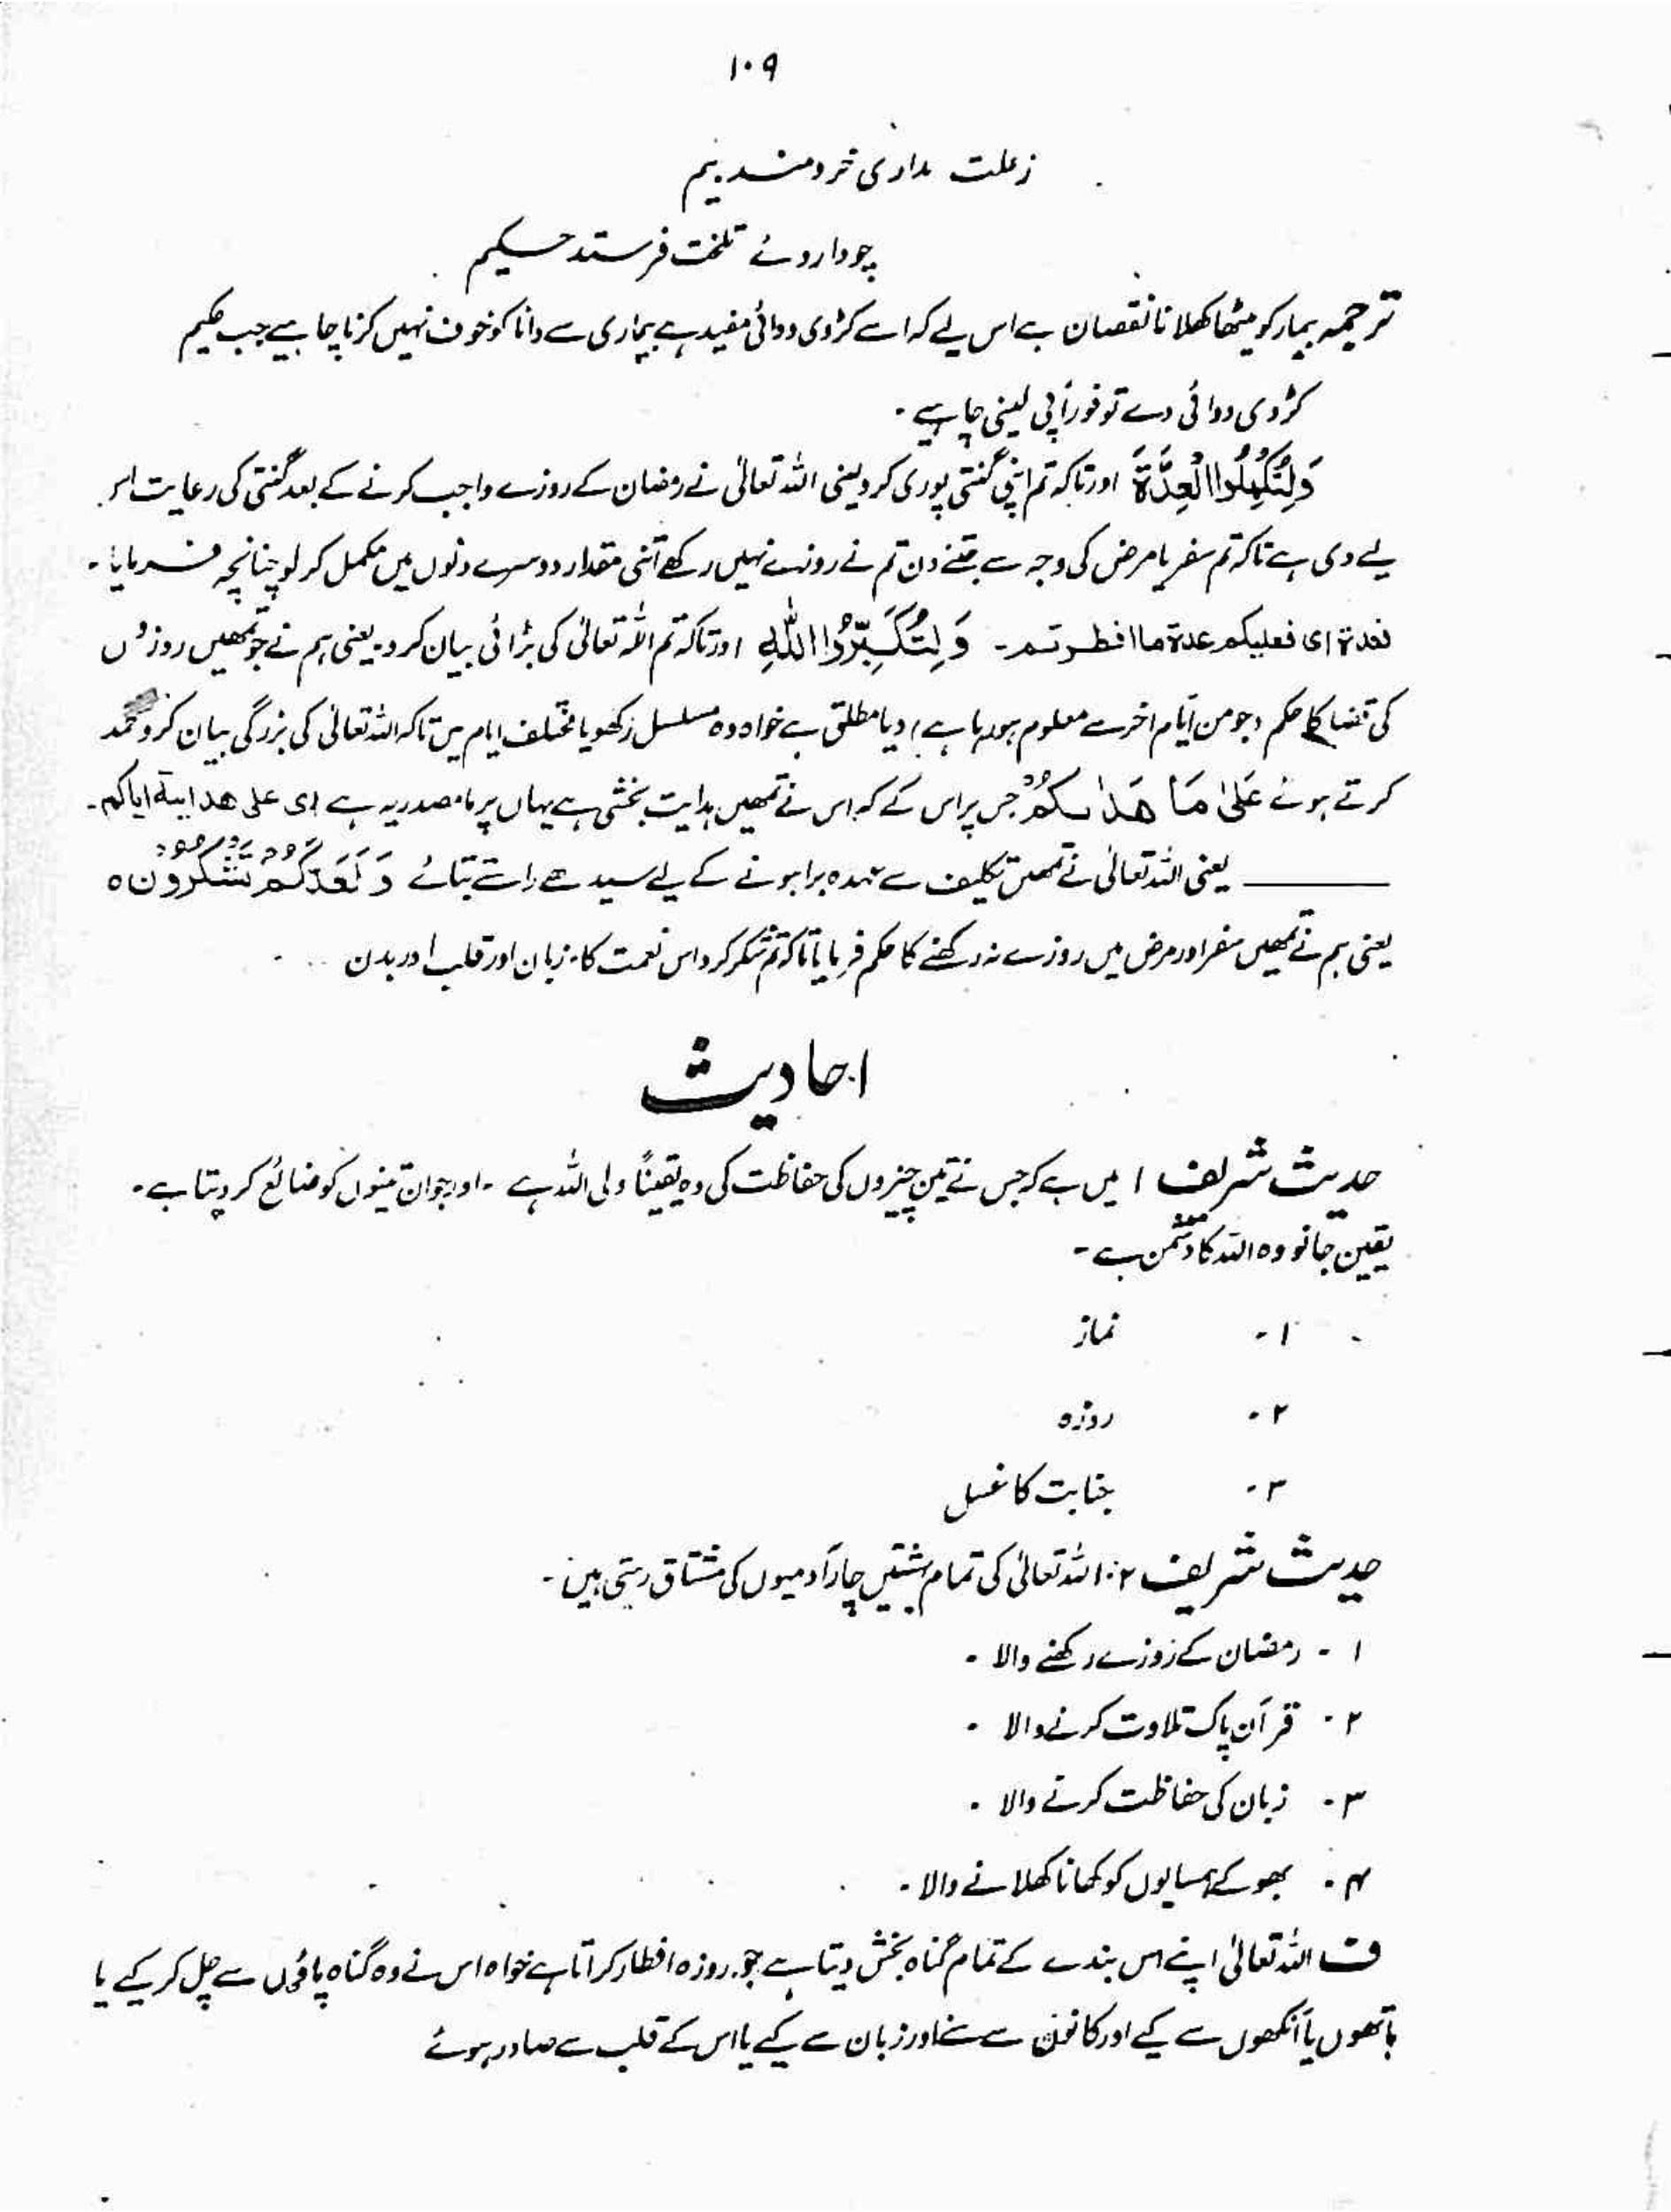 ۱۰۹
زعلت مداری خردمند بیم
چوداروئے تلخت فرستد حکیم
ترجمہ بیمار کو میٹھا کھلانا نقصان ہے اس لیے کہ اسے کڑوی دوائی مفید ہے بیماری سے دانا کو خوف نہیں کرنا چاہیے جب حکیم
کڑوی دوائی دے تو فوراً پی لینی چاہیے ۔
وَلِتُكْمِلُوا الْعِدَّةَ اور تاکہ تم اپنی گنتی پوری کرو یعنی اللہ تعالیٰ نے رمضان کے روزے واجب کرنے کے بعد گنتی کی رعایت اس
لیے دی ہے تاکہ تم سفر یا مرض کی وجہ سے جتنے دن تم نے روزے نہیں رکھے اتنی مقدار دوسرے دنوں میں مکمل کر لو چنانچہ فرمایا ۔
فعدۃ ای فعلیکم عدۃ ما افطرتم ۔ وَلِتُكَبِّرُوا اللّٰهَ اور تاکہ تم اللہ تعالیٰ کی بڑائی بیان کرو یعنی ہم نے جو تمھیں روزوں
کی قضا کا حکم (جو من ایام اخر سے معلوم ہو رہا ہے) دیا مطلق ہے خواہ وہ مسلسل رکھو یا مختلف ایام میں تاکہ اللہ تعالیٰ کی بزرگی بیان کرو حمد
کرتے ہوئے عَلٰی مَا هَدٰىكُمْ جس پر اس کے کہ اس نے تمھیں ہدایت بخشی ہے یہاں پر ما مصدریہ ہے ای علی ھدایتہ ایاکم ۔
یعنی اللہ تعالیٰ نے تمھیں تکلیف سے عہدہ برا ہونے کے لیے سیدھے راستے بتائے وَلَعَلَّكُمْ تَشْكُرُوْنَ ہ
یعنی ہم نے تمھیں سفر اور مرض میں روزے نہ رکھنے کا حکم فرمایا تاکہ تم شکر کرو اس نعمت کا، زبان اور قلب اور بدن
احادیث
حدیث شریف ۱ میں ہے کہ جس نے تین چیزوں کی حفاظت کی وہ یقیناً ولی اللہ ہے ۔ اور جو ان تینوں کو ضائع کر دیتا ہے ۔
یقین جانو وہ اللہ کا دشمن ہے ۔
۱ ۔ نماز
۲ ۔ روزہ
۳ ۔ جنابت کا غسل
حدیث شریف ۲ : اللہ تعالیٰ کی تمام بہشتیں چار آدمیوں کی مشتاق رہتی ہیں ۔
۱ ۔ رمضان کے روزے رکھنے والا ۔
۲ ۔ قرآن پاک تلاوت کرنے والا ۔
۳ ۔ زبان کی حفاظت کرنے والا ۔
۴ ۔ بھوکے ہمسایوں کو کھانا کھلانے والا ۔
ف اللہ تعالیٰ اپنے اس بندے کے تمام گناہ بخش دیتا ہے جو روزہ افطار کراتا ہے خواہ اس نے وہ گناہ پاؤں سے چل کر کیے یا
ہاتھوں یا آنکھوں سے کیے اور کانوں سے سنے اور زبان سے کیے یا اس کے قلب سے صادر ہوئے